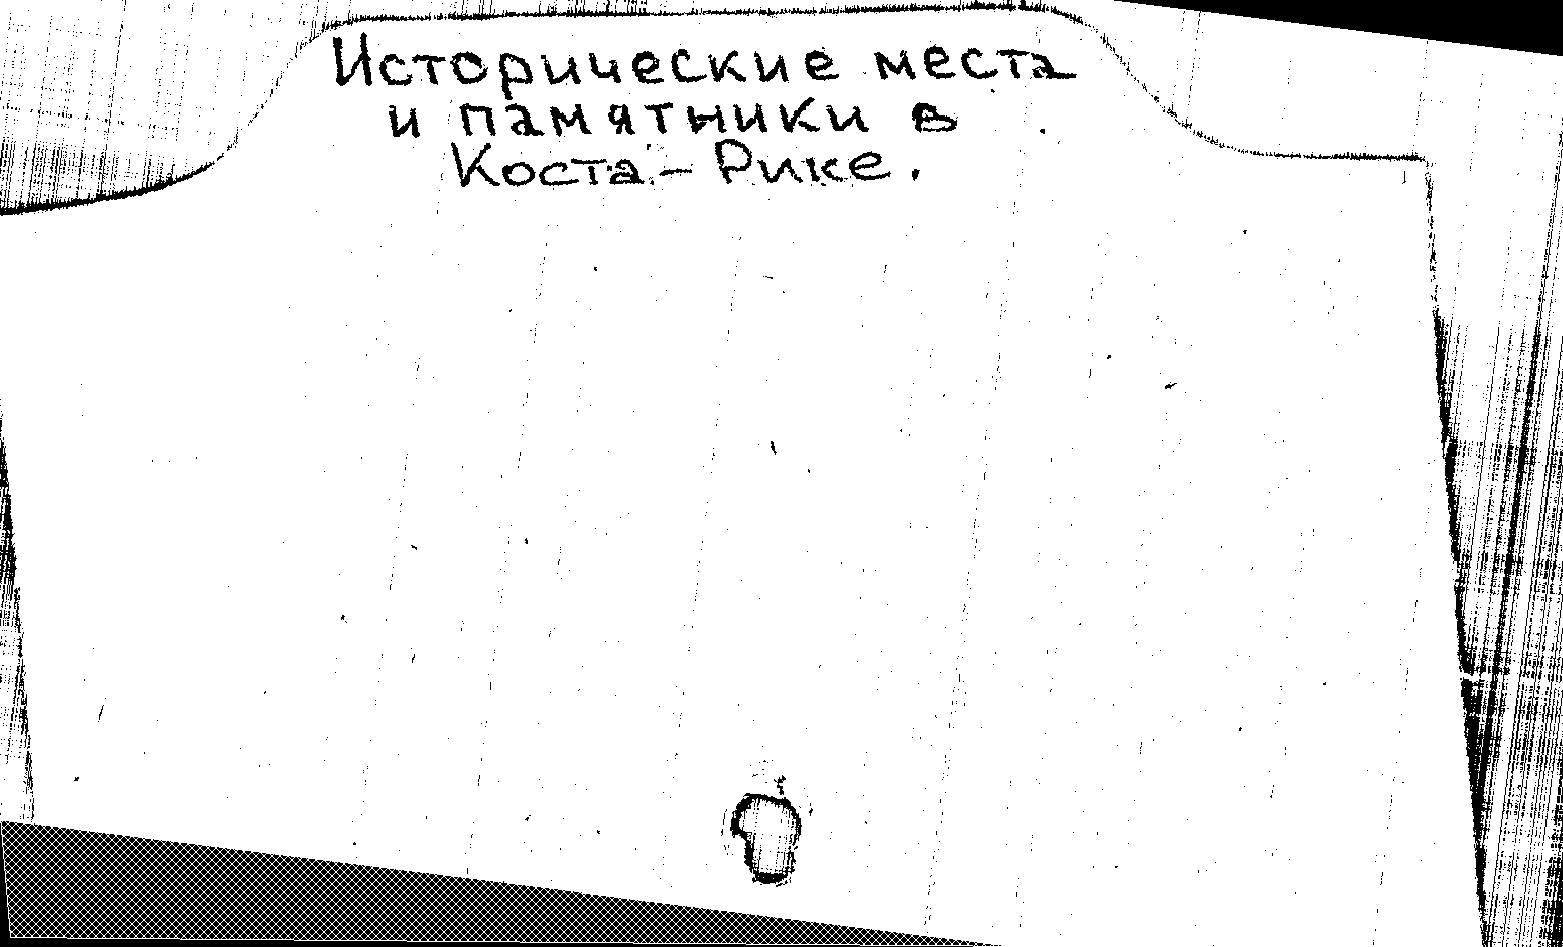 Исторические места
и памятники в
Коста-Рике.